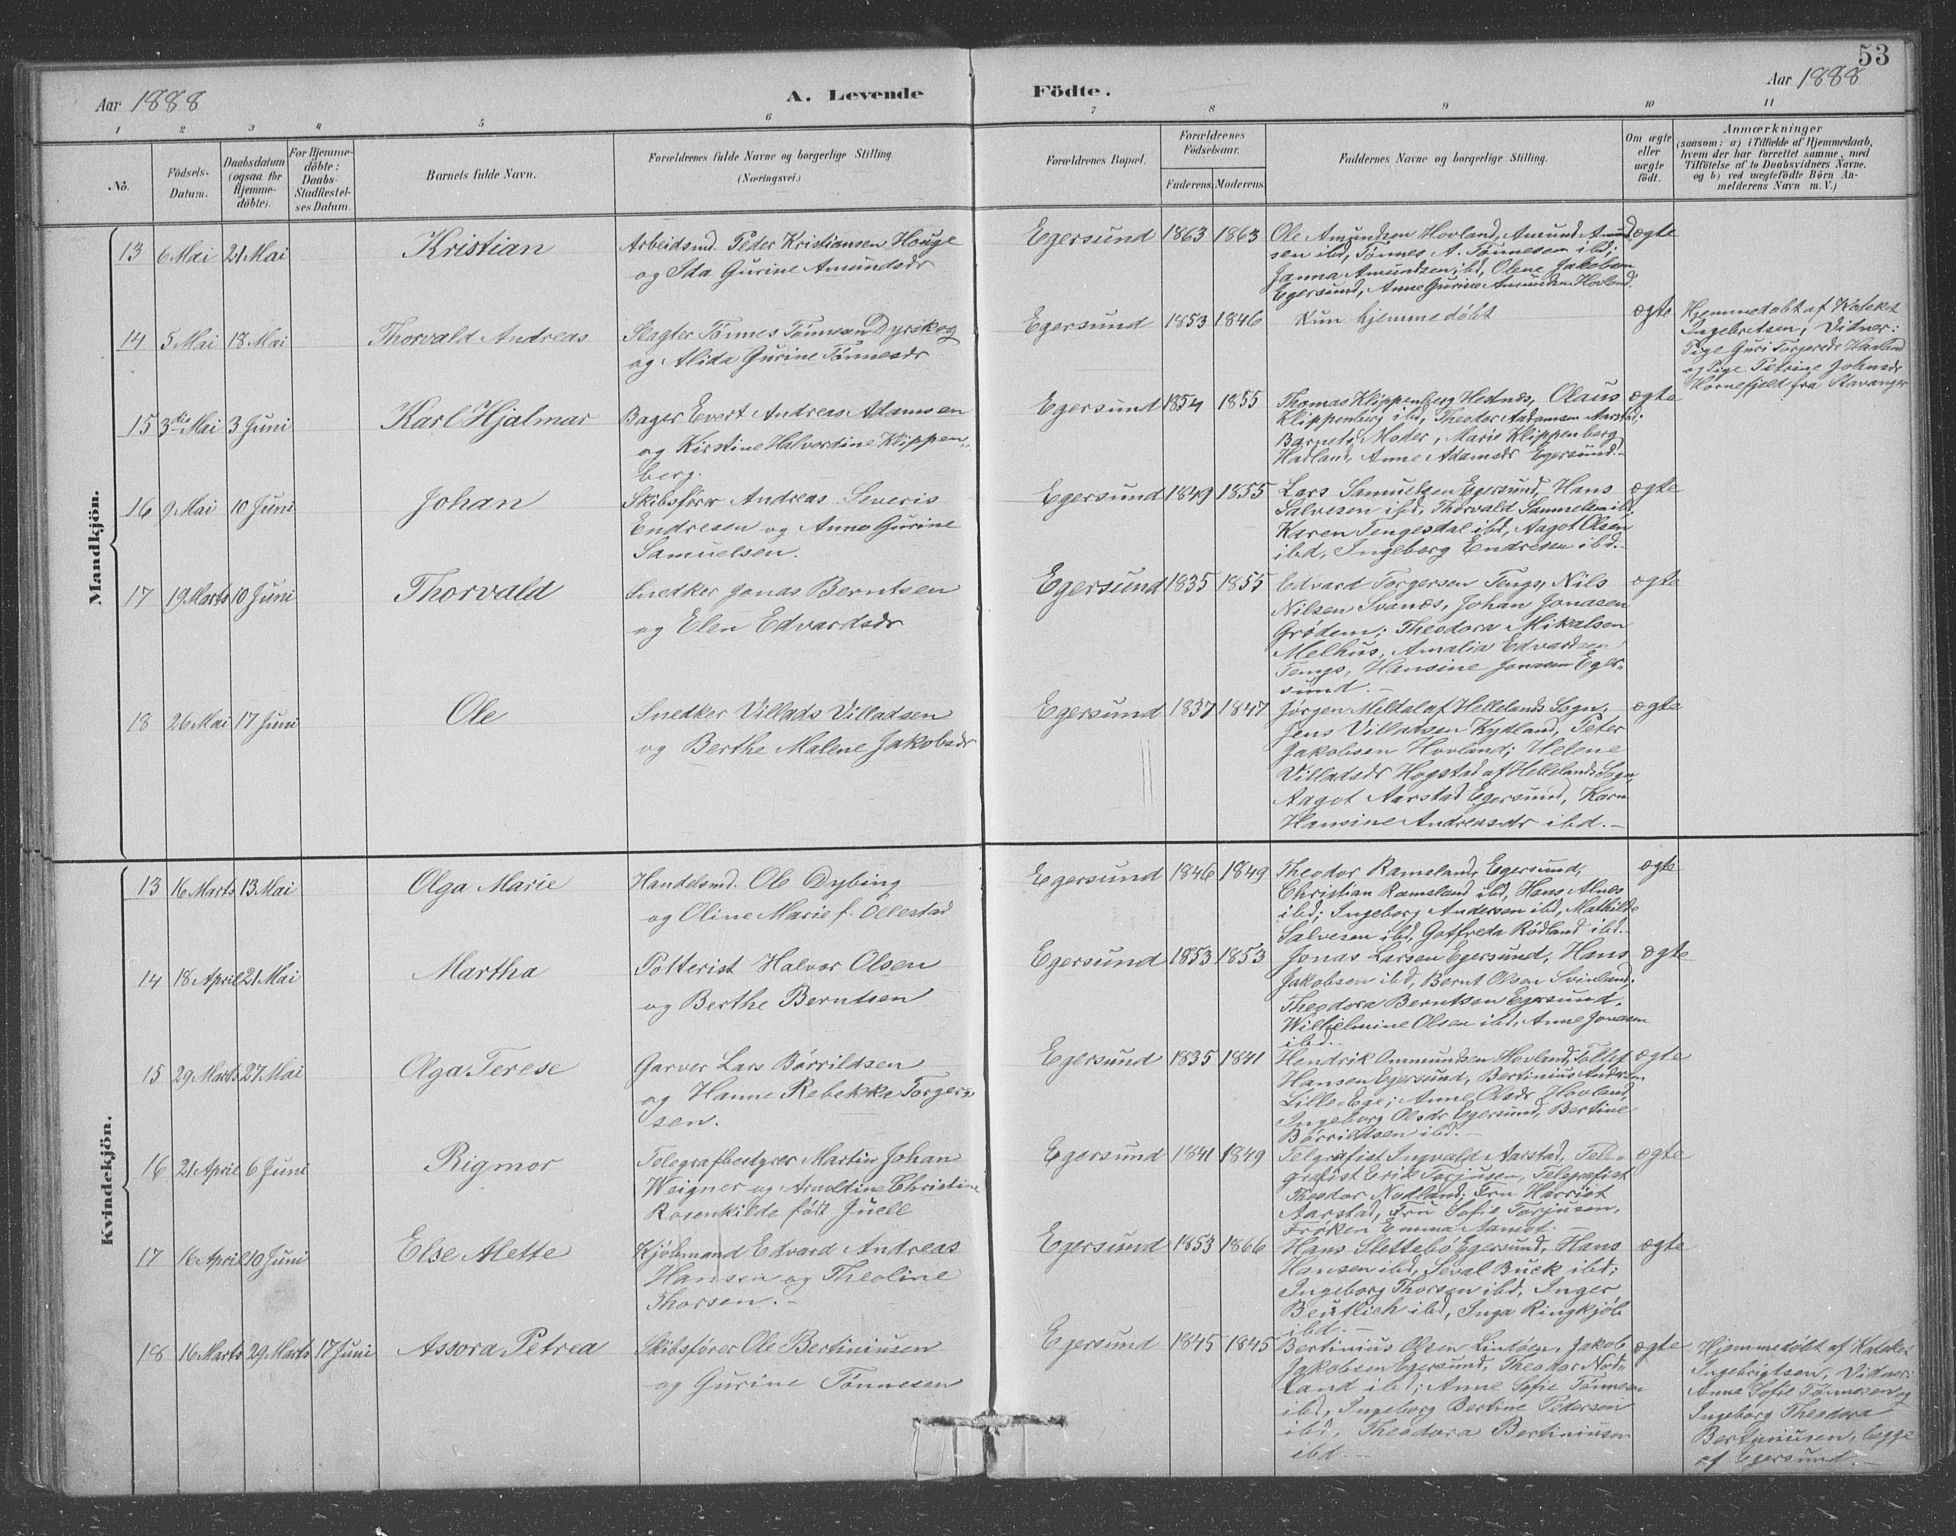 53
Aar 1888
A. Levende Födte.
Aar 1888
1 2 3 4 5 6 7 8 9 10 11
No.
Födsels-Datum.
Daabsdatum (ogsaa for Hjemmedöbte).
For Hjemmedöbte: Daabs-Stadfæstelses Datum.
Barnets fulde Navn.
Forældrenes fulde Navne og borgerlige Stilling.
(Næringsvei.)
Forældrenes Bopæl.
Forældrenes Födselsaar.
Faderens. Moderens.
Faddernes Navne og borgerlige Stilling.
Om ægte eller uægte födt.
Anmærkninger
(saasom: a) i Tilfælde af Hjemmedaab, hvem der har forrettet samme, med Tilföielse af to Daabsvidners Navne, og b) ved uægtefödte Börn Anmelderens Navn m. V.)
Mandkjön.
13 6 Mai 21 Mai Kristian
Arbeidsmd. Peder Kristiansen Houge
og Ida Gurine Amundsdr
Egersund 1863 1863
Ole Amundsen Hovland, Amund Amund
sen ibd, Tønnes A. Tønnesen ibd;
Janna Amundsen ibd, Olene Jakobsen
Egersund, Anne Gurine Amundsen Hovland.
ægte
14 5 Mai 18 Mai Thorvald Andreas
Slagter Tønnes Tønnesen Dyrskog
og Alida Gurine Tønnesdr
Egersund 1853 1846
Kun hjemmedøbt
ægte
Hjemmedøbt af Kateket
Ingebretsen, Vidner:
Pige Guri Torgersdr Havland
og Pige Petrine Johnsdr
Hornefjeld fra Stavanger
15 3die Mai 3 Juni Karl Hjalmar
Bager Evert Andreas Adamsen
og Kirstine Halvordine Klippen-
berg.
Egersund 1854 1855
Thomas Klippenberg Hednæs, Olaus
Klippenberg ibd, Theodor Adamsen Aarstad;
Barnets Moder, Marie Klippenberg
Hadland, Anne Adamsdr Egersund.
ægte
16 9 Mai 10 Juni Johan
Skibsfører Andreas Severis
Endresen og Anne Gurine
Samuelsen.
Egersund 1849 1855
Lars Samuelsen Egersund, Hans
Salvesen ibd, Thorvald Samuelsen ibd,
Karen Tengesdal ibd, Aagot Olsen
ibd, Ingeborg Endresen ibd.
ægte
17 19 Marts 10 Juni Thorvald
Snedker Jonas Berntsen
og Elen Edvardsdr
Egersund 1835 1855
Edvard Torgersen Tengs, Nils
Nilsen Svanæs, Johan Jonasen
Grødem; Theodora Mikalsen
Melhus, Amalia Edvardsen
Tengs, Hansine Jonasen Eger-
sund.
ægte
18 26 Mai 17 Juni Ole
Snedker Villads Villadsen
og Berthe Malene Jakobsdr
Egersund 1837 1847
Jørgen Meldal af Hellelands Sogn,
Jens Villadsen Kydland, Peter
Jakobsen Hovland; Helene
Villadsdr Hogstad af Hellelands Sogn,
Aagot Aarstad Egersund, Karn
Hansine Andreasdr ibd.
ægte
Kvindekjön.
13 16 Marts 13 Mai Olga Marie
Handelsmd. Ole Dybing
og Oline Marie f. Ollestad
Egersund 1846 1849
Theodor Ramsland, Egersund,
Christian Ramsland ibd, Hans Alnæs
ibd; Ingeborg Andersen ibd, Mathilde
Salvesen ibd, Gotfreda Rødland ibd.
ægte
14 18 April 21 Mai Martha
Potterist Halvor Olsen
og Berthe Berntsen
Egersund 1853 1853
Jonas Larsen Egersund, Hans
Jakobsen ibd, Bernt Olsen Svinland;
Theodora Berntsen Egersund,
Wilhelmine Olsen ibd, Anne Jonesen
ibd.
ægte
15 29 Marts 27 Mai Olga Terese
Garver Lars Børrildsen
og Hanne Rebekka Torger-
sen.
Egersund 1835 1841
Hendrik Ommundsen Hovland, Tollef
Hansen Egersund, Bertinius Andersen
Lille-Ege; Anne Olsdr Hovland,
Ingeborg Olsdr Egersund, Bertine
Børrildsen ibd.
ægte
16 21 April 6 Juni Rigmor
Telegrafbestyrer Martin Johan
Weigner og Arnoldine Christine
Rosenkilde født Juell
Egersund 1841 1849
Telegrafist Ingvald Aarstad, Tele-
grafist Erik Torjusen, Telegrafist
Theodor Nodland; Fru Harriet
Aarstad, Fru Sofie Torjusen,
Frøken Emma Aamot.
ægte
17 16 April 10 Juni Else Alette
Kjøbmand Edvard Andreas
Hansen og Theoline
Thorsen.
Egersund 1853 1866
Hans Slettebø Egersund, Hans
Hansen ibd, Seval Buck ibd;
Ingeborg Thorsen ibd, Inger
Beutlich ibd, Inga Ringkjöb
ibd.
ægte
18 16 Marts 29 Marts 17 Juni Assora Petrea
Skibsfører Ole Bertiniusen
og Gurine Tønnesen
Egersund 1845 1845
Bertinius Olsen Lindøen, Jakob
Jakobsen Egersund, Theodor Nod-
land ibd; Anne Sofie Tønnesen
ibd, Ingeborg Bertine Pedersen
ibd, Theodora Bertiniusen
ibd.
ægte
Hjemmedøbt af Kateket
Ingebrigtsen, Vidner:
Anne Sofie Tønnesen og
Ingeborg Theodora
Bertiniusen, begge
af Egersund.